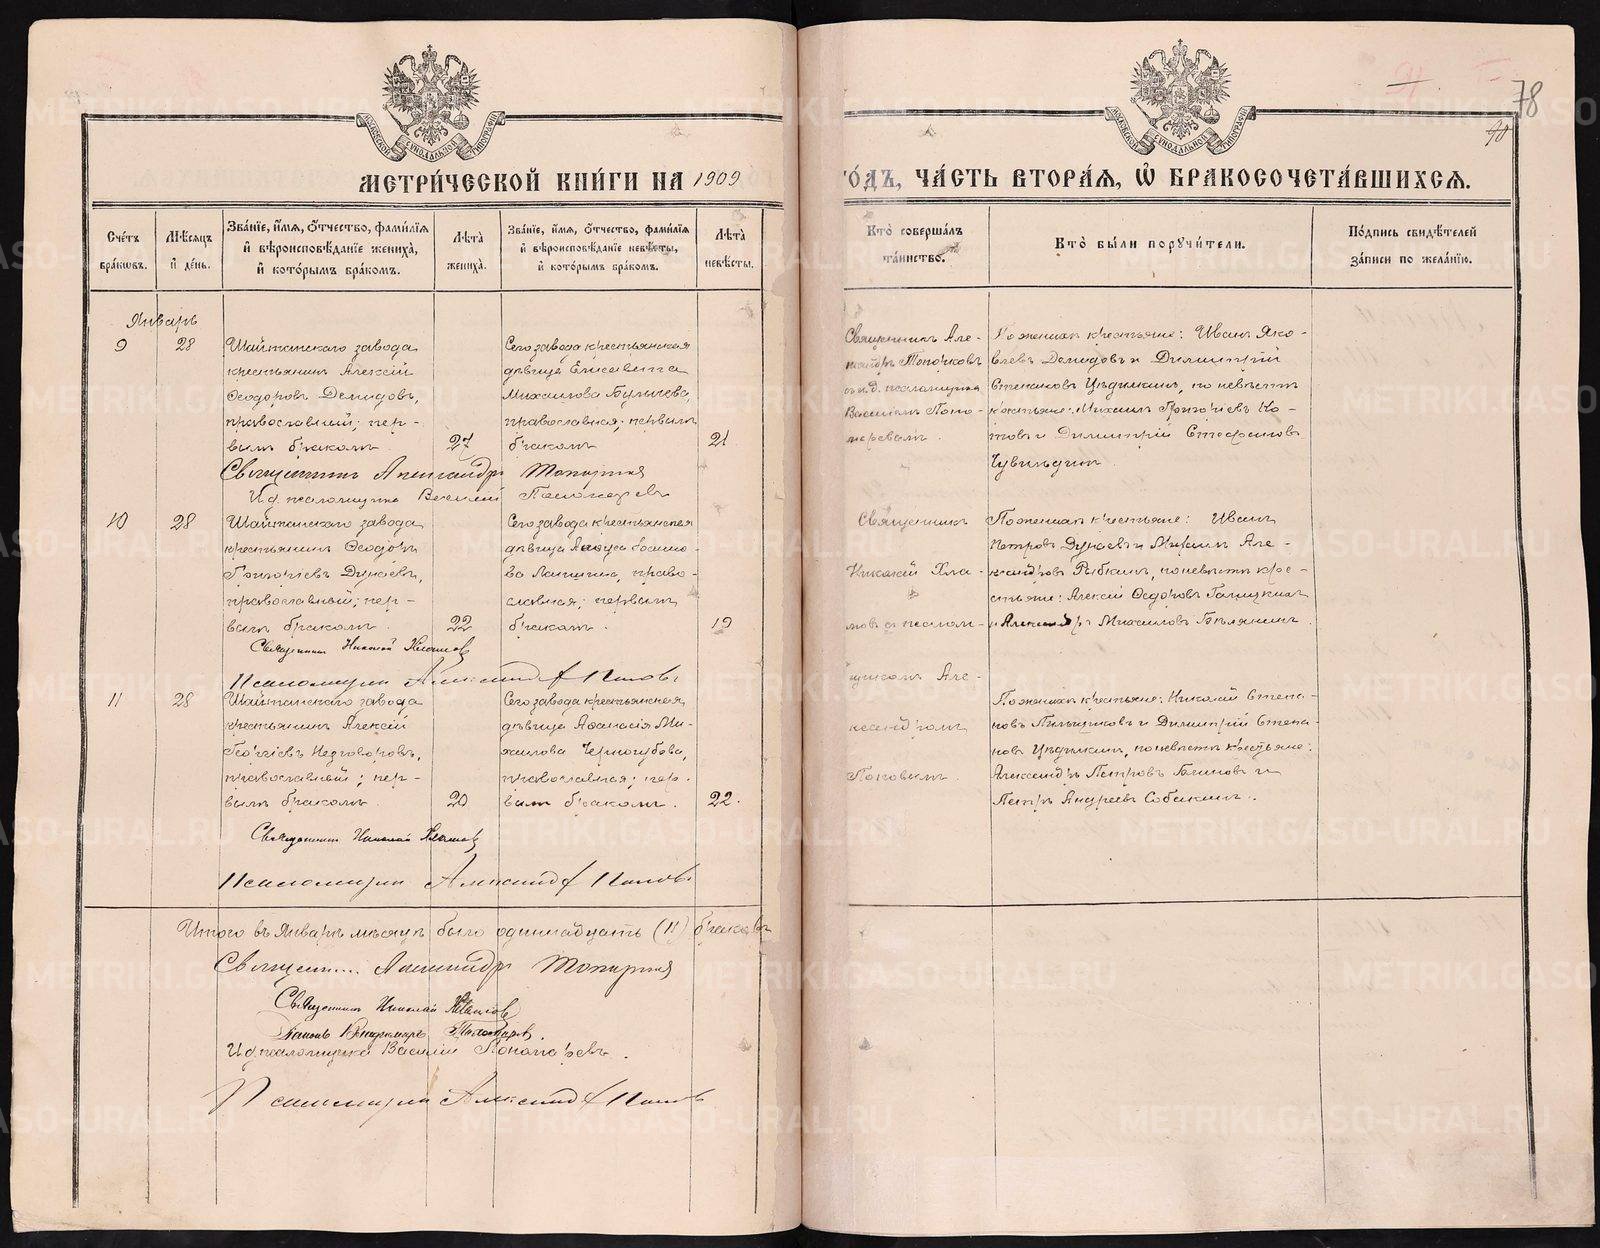 78
МЕТРИЧЕСКОЙ КНИГИ НА 1909
ГОДЪ, ЧАСТЬ ВТОРАЯ, Ѽ БРАКОСОЧЕТАВШИХСЯ.
Счетъ браковъ.
Мѣсяцъ и день.
Званїе, имя, отчество, фамилїя
и вѣроисповѣданїе жениха,
и которымъ бракомъ.
Лѣта жениха.
Званїе, имя, отчество, фамилїя
и вѣроисповѣданїе невѣсты,
и которымъ бракомъ.
Лѣта невѣсты.
Кто совершалъ
таинство.
Кто были поручители.
Подпись свидѣтелей
записи по желанїю.
Январь
9
28
Шайтанскаго завода
крестьянинъ Алексій
Ѳеодоровъ Демидовъ,
православный; пер-
вымъ бракомъ
27
Сего завода крестьянская
дѣвица Елисавета
Михаилова
православная; первымъ
бракомъ
21
Священникъ Але-
ксандръ
съ и.д. псаломщика
Василіемъ Поно-
маревымъ.
По женихѣ крестьяне: Иванъ Яко-
влевъ Демидовъ и Димитрій
по невѣстѣ
крестьяне: Михаилъ Григоріевъ
и Димитрій Стефановъ
Священникъ Александръ
И.д. псаломщика Василій Пономаревъ
10
28
Шайтанскаго завода
крестьянинъ Ѳеодоръ
Григоріевъ Дунаевъ,
православный; пер-
вымъ бракомъ.
22
Сего завода крестьянская
дѣвица
право-
славная; первымъ
бракомъ.
19
Священникъ
Николай Хла-
мовъ съ псалом-
щикомъ Але-
ксандромъ
Поповымъ.
По женихѣ крестьяне: Иванъ
Петровъ Дунаевъ и Михаилъ Але-
ксандровъ Рыбкинъ, по невѣстѣ кре-
стьяне: Алексій Ѳедоровъ
и Александръ Михаиловъ Бѣлянинъ.
Священникъ Николай Хламовъ
Псаломщикъ Александръ Поповъ
11
28
Шайтанскаго завода
крестьянинъ Алексій
Георгіевъ Недговоровъ,
православный; пер-
вымъ бракомъ.
20
Сего завода крестьянская
дѣвица Аѳанасія Ми-
хаилова Черногубова,
православная; пер-
вымъ бракомъ.
22.
По женихѣ крестьяне: Николай Степа-
новъ и Димитрій Степа-
новъ по невѣстѣ крестьяне:
Александръ Петровъ и
Петръ Андреевъ Собакинъ.
Священникъ Николай Хламовъ
Псаломщикъ Александръ Поповъ
Итого въ Январѣ мѣсяцѣ было одиннадцать (11) браковъ
Священ... Александръ
Священникъ Николай Хламовъ
И.д. псаломщика Василій Пономаревъ.
Псаломщикъ Александръ Поповъ